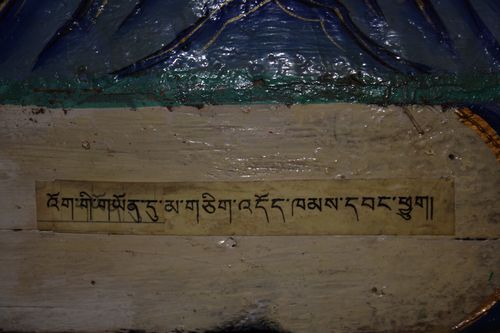 འོག་གི་གོ་ཡོནུ་དུ་མ་གཅིག་འདོད་ཁམས་དབང་ཕྱུག།